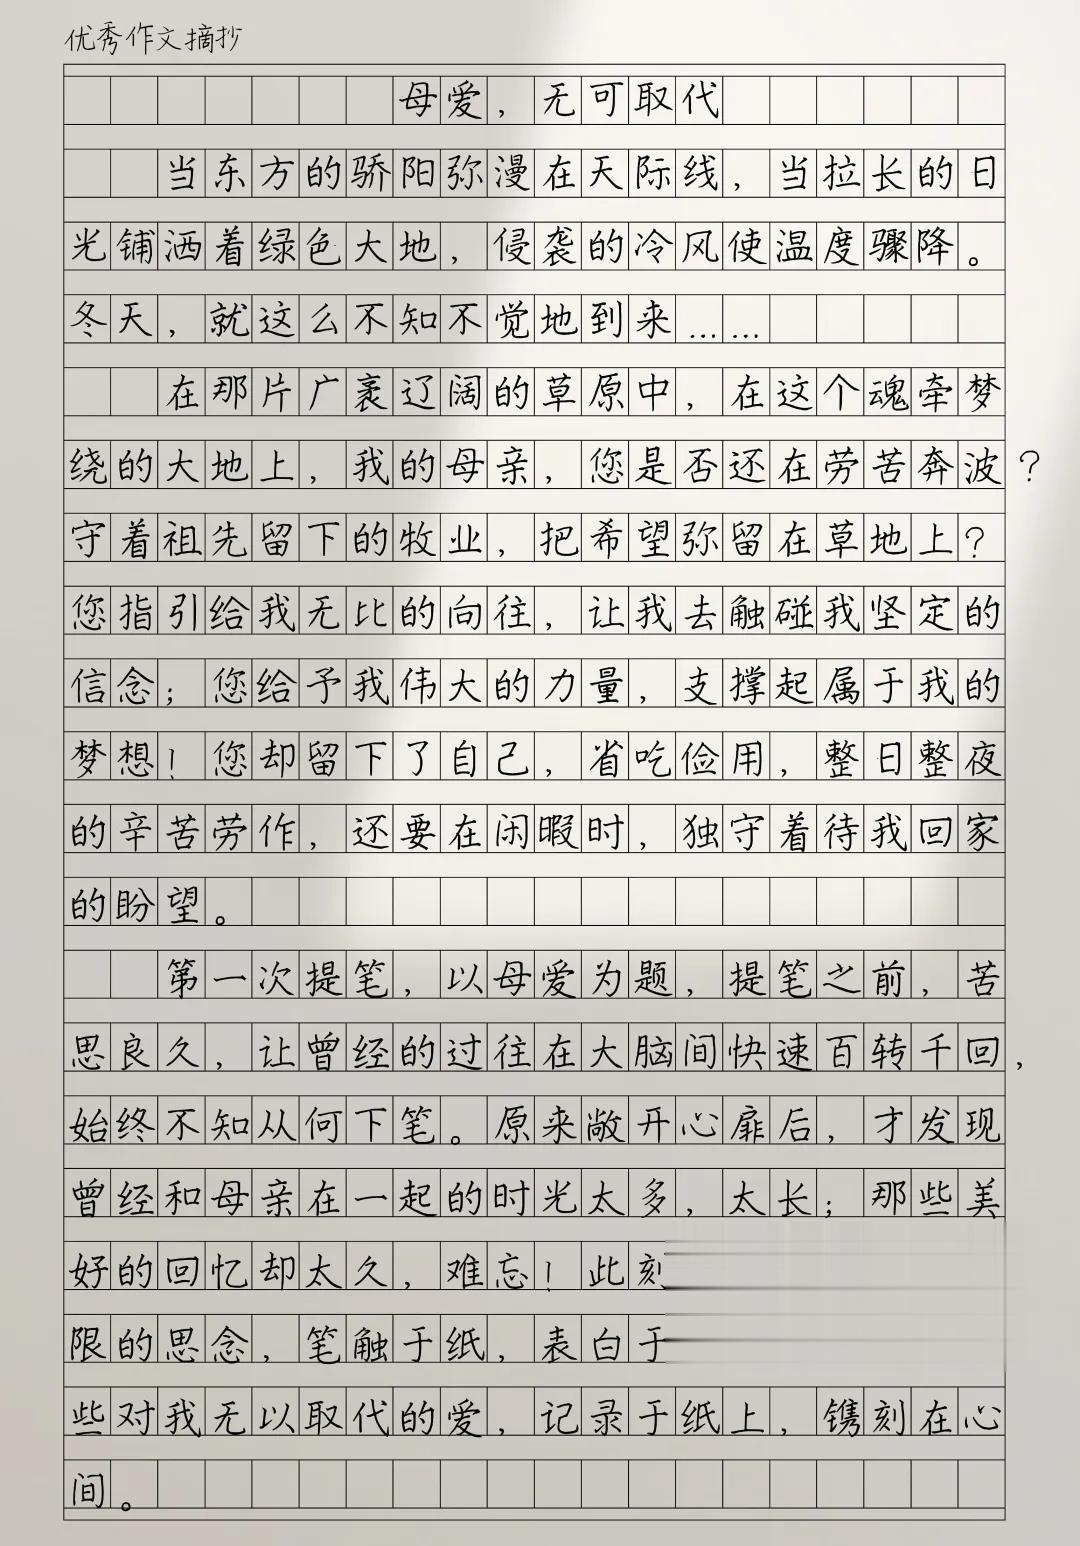 优秀作文摘抄
母爱，无可取代
当东方的骄阳弥漫在天际线，当拉长的日
光铺洒着绿色大地，侵袭的冷风使温度骤降。
冬天，就这么不知不觉地到来……
在那片广袤辽阔的草原中，在这个魂牵梦
绕的大地上，我的母亲，您是否还在劳苦奔波？
守着祖先留下的牧业，把希望弥留在草地上？
您指引给我无比的向往，让我去触碰我坚定的
信念；您给予我伟大的力量，支撑起属于我的
梦想！您却留下了自己，省吃俭用，整日整夜
的辛苦劳作，还要在闲暇时，独守着待我回家
的盼望。
第一次提笔，以母爱为题，提笔之前，苦
思良久，让曾经的过往在大脑间快速百转千回，
始终不知从何下笔。原来敞开心扉后，才发现
曾经和母亲在一起的时光太多，太长；那些美
好的回忆却太久，难忘！此刻
限的思念，笔触于纸，表白于
些对我无以取代的爱，记录于纸上，镌刻在心
间。